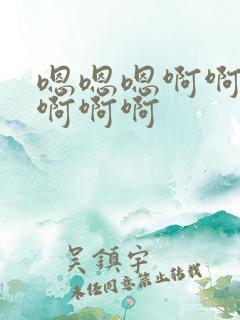 嗯嗯嗯啊啊
啊啊啊
吴鎮宇
未经同意禁止转载